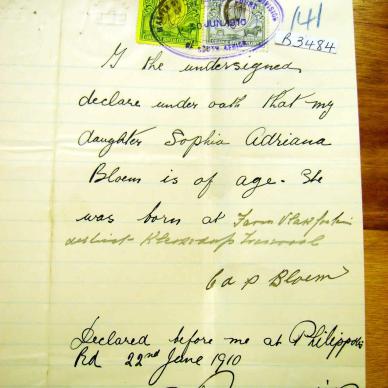 JUN 1910
SOUTH AFRICA
141
B3484
I the undersigned
declare under oath that my
daughter Sophia Adriana
Bloem is of age. She
was born at Farm
district Klerksdorp Transvaal
Bloem
Declared before me at Philippolis
Rd 22nd June 1910